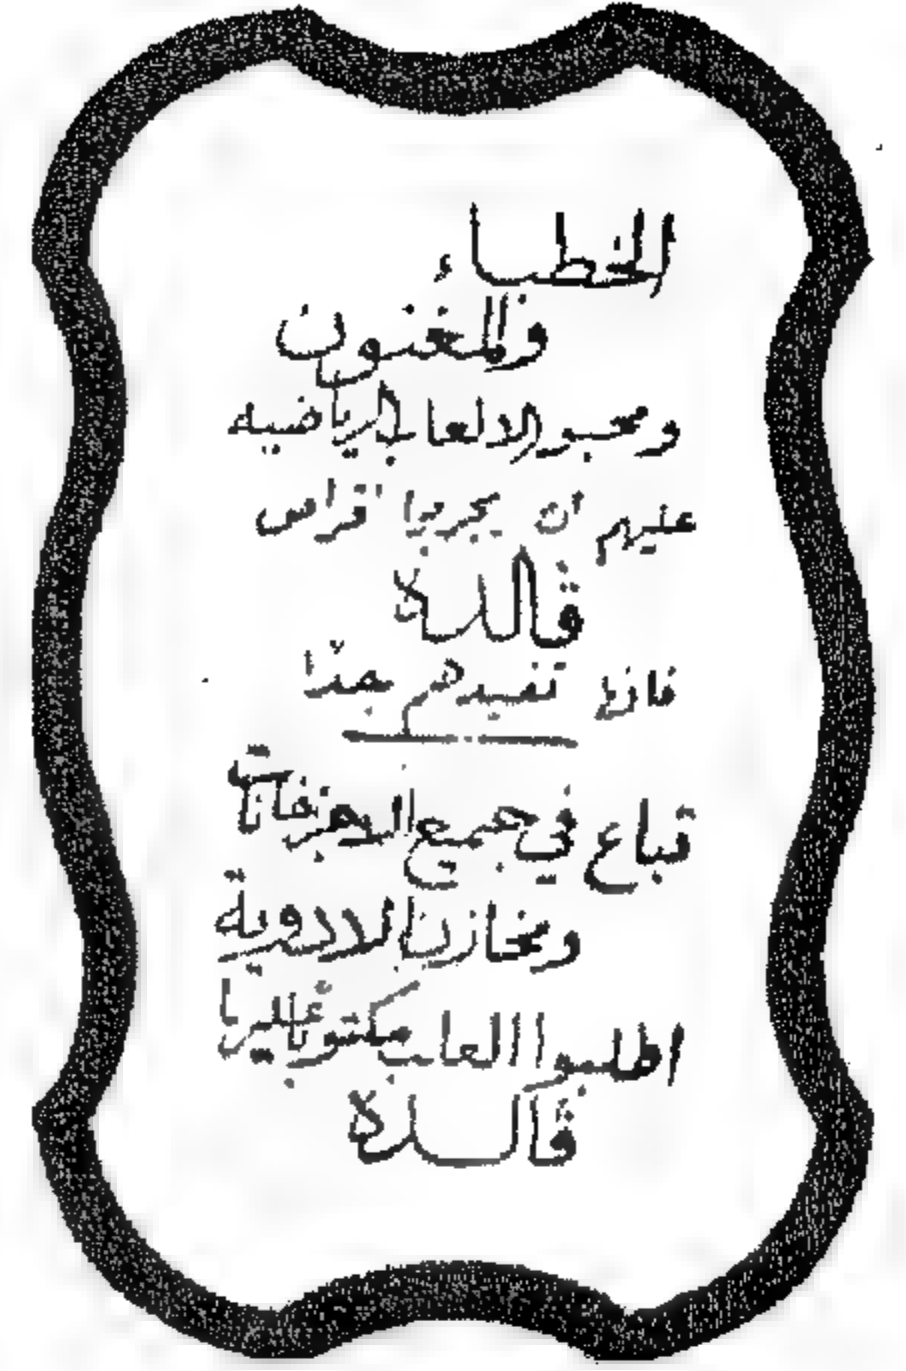 الخطباء
والمغنون
ومحبو الالعاب الرياضيه
عليهم ان يجربوا اقراص
ڤالدة
فانها تفيدهم جدّا
تباع في جميع الاجزخانات
ومخازن الادوية
اطلبوا العلب مكتوبا عليها
ڤالدة